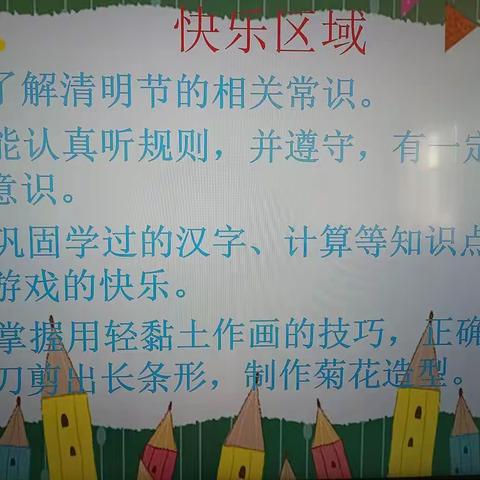 快乐区域
了解清明节的相关常识。
能认真听规则，并遵守，有一定
意识。
巩固学过的汉字、计算等知识点
游戏的快乐。
掌握用轻黏土作画的技巧，正确
刀剪出长条形，制作菊花造型。